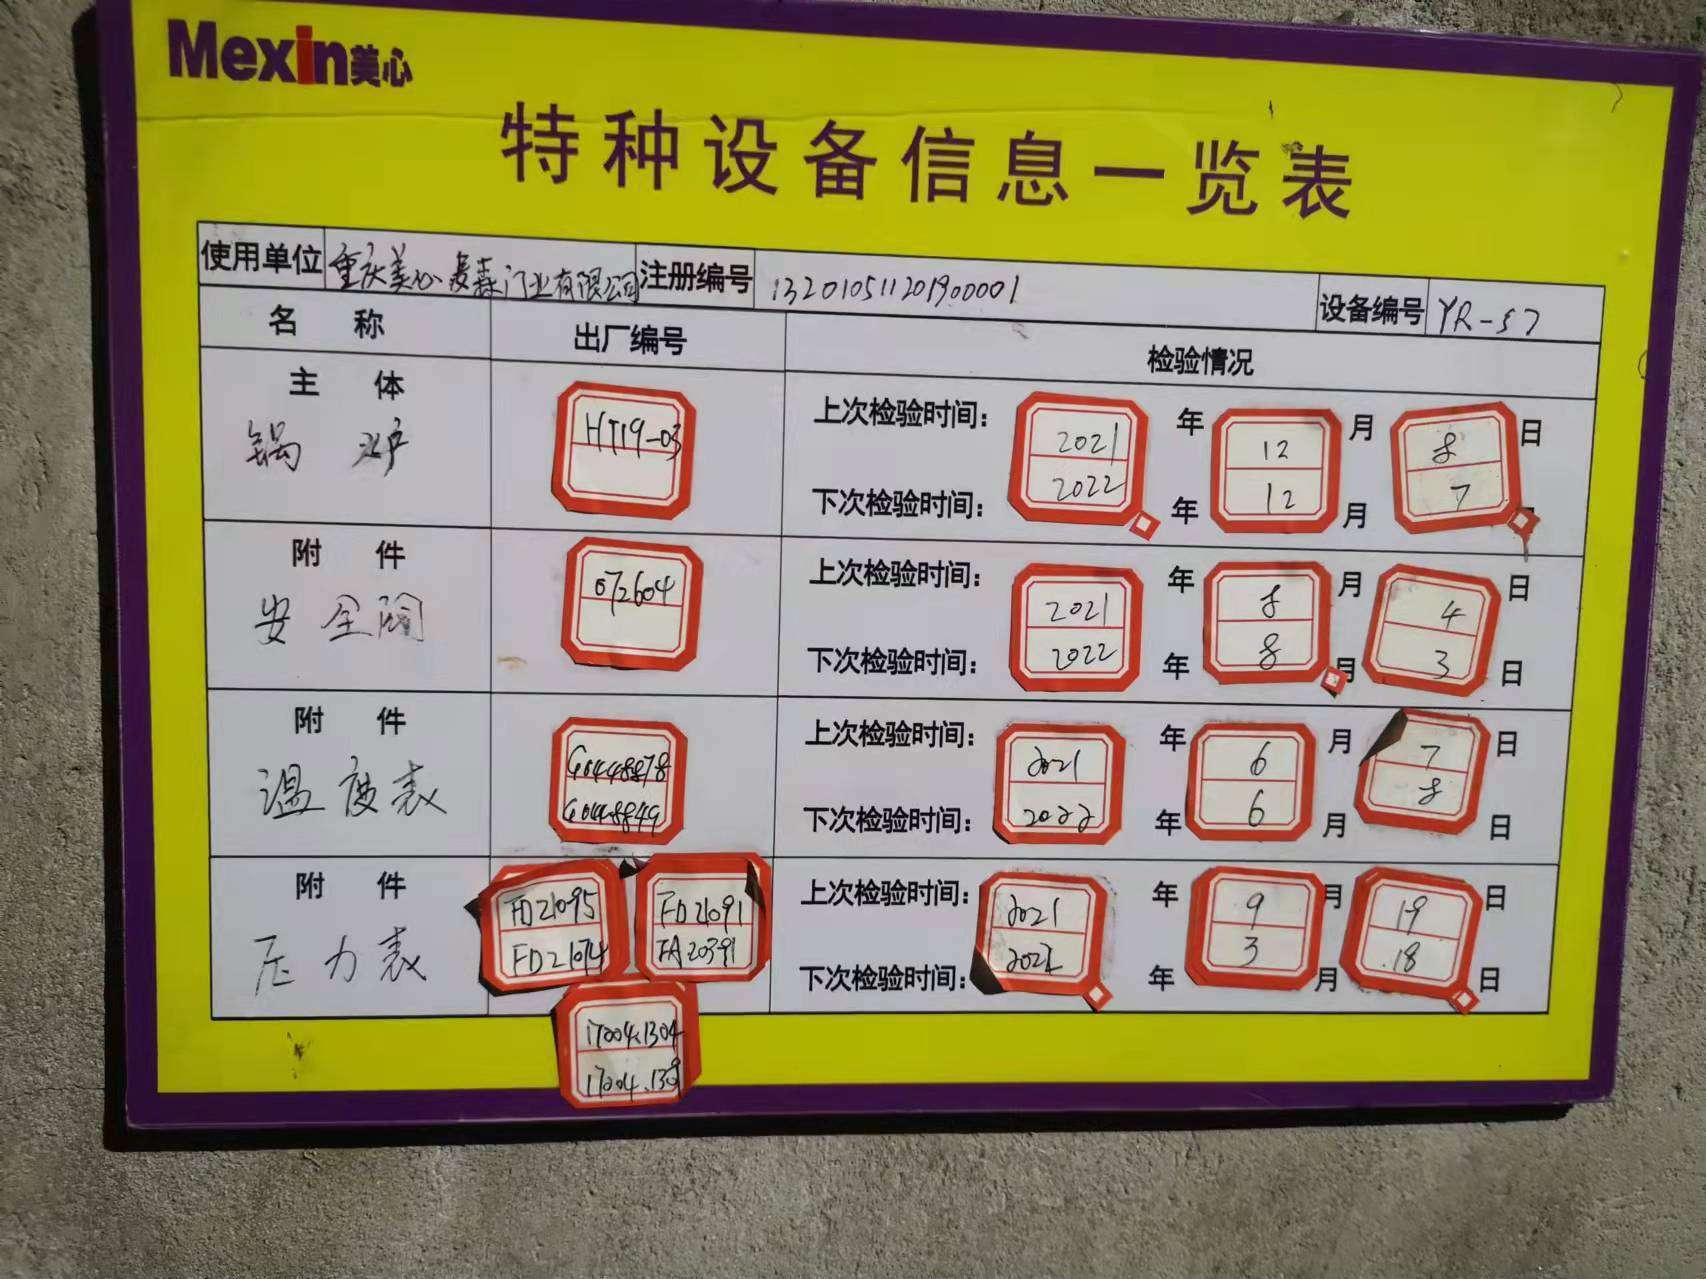 Mexin美心
特种设备信息一览表
使用单位 重庆美心麦森门业有限公司 注册编号 132010511201900001 设备编号 YR-57
名 称 出厂编号 检验情况
主 体
锅 炉
HT19-03
上次检验时间: 2021 年 12 月 8 日
下次检验时间: 2022 年 12 月 7
附 件
安全阀
072604
上次检验时间: 2021 年 8 月 4 日
下次检验时间: 2022 年 8 月 3 日
附 件
温度表
G0448878
G0448849
上次检验时间: 2021 年 6 月 7 日
下次检验时间: 2022 年 6 月 8 日
附 件
压力表
FD21095 FD21091
FD21074 FA20391
17004.1304
上次检验时间: 2021 年 9 月 19 日
下次检验时间: 2022 年 3 月 18 日